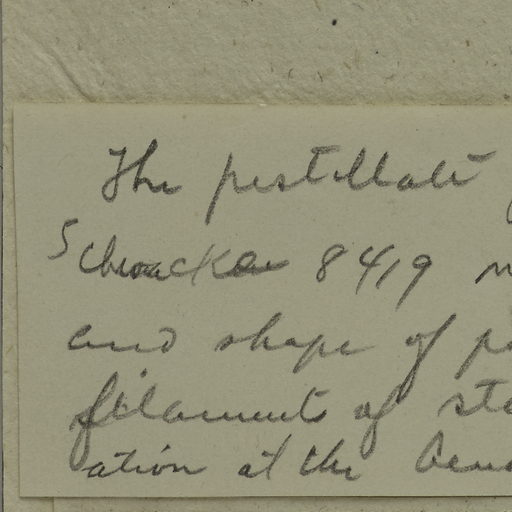 The pistillate
Schwacke 8419
and shape of
filament of
ation at the